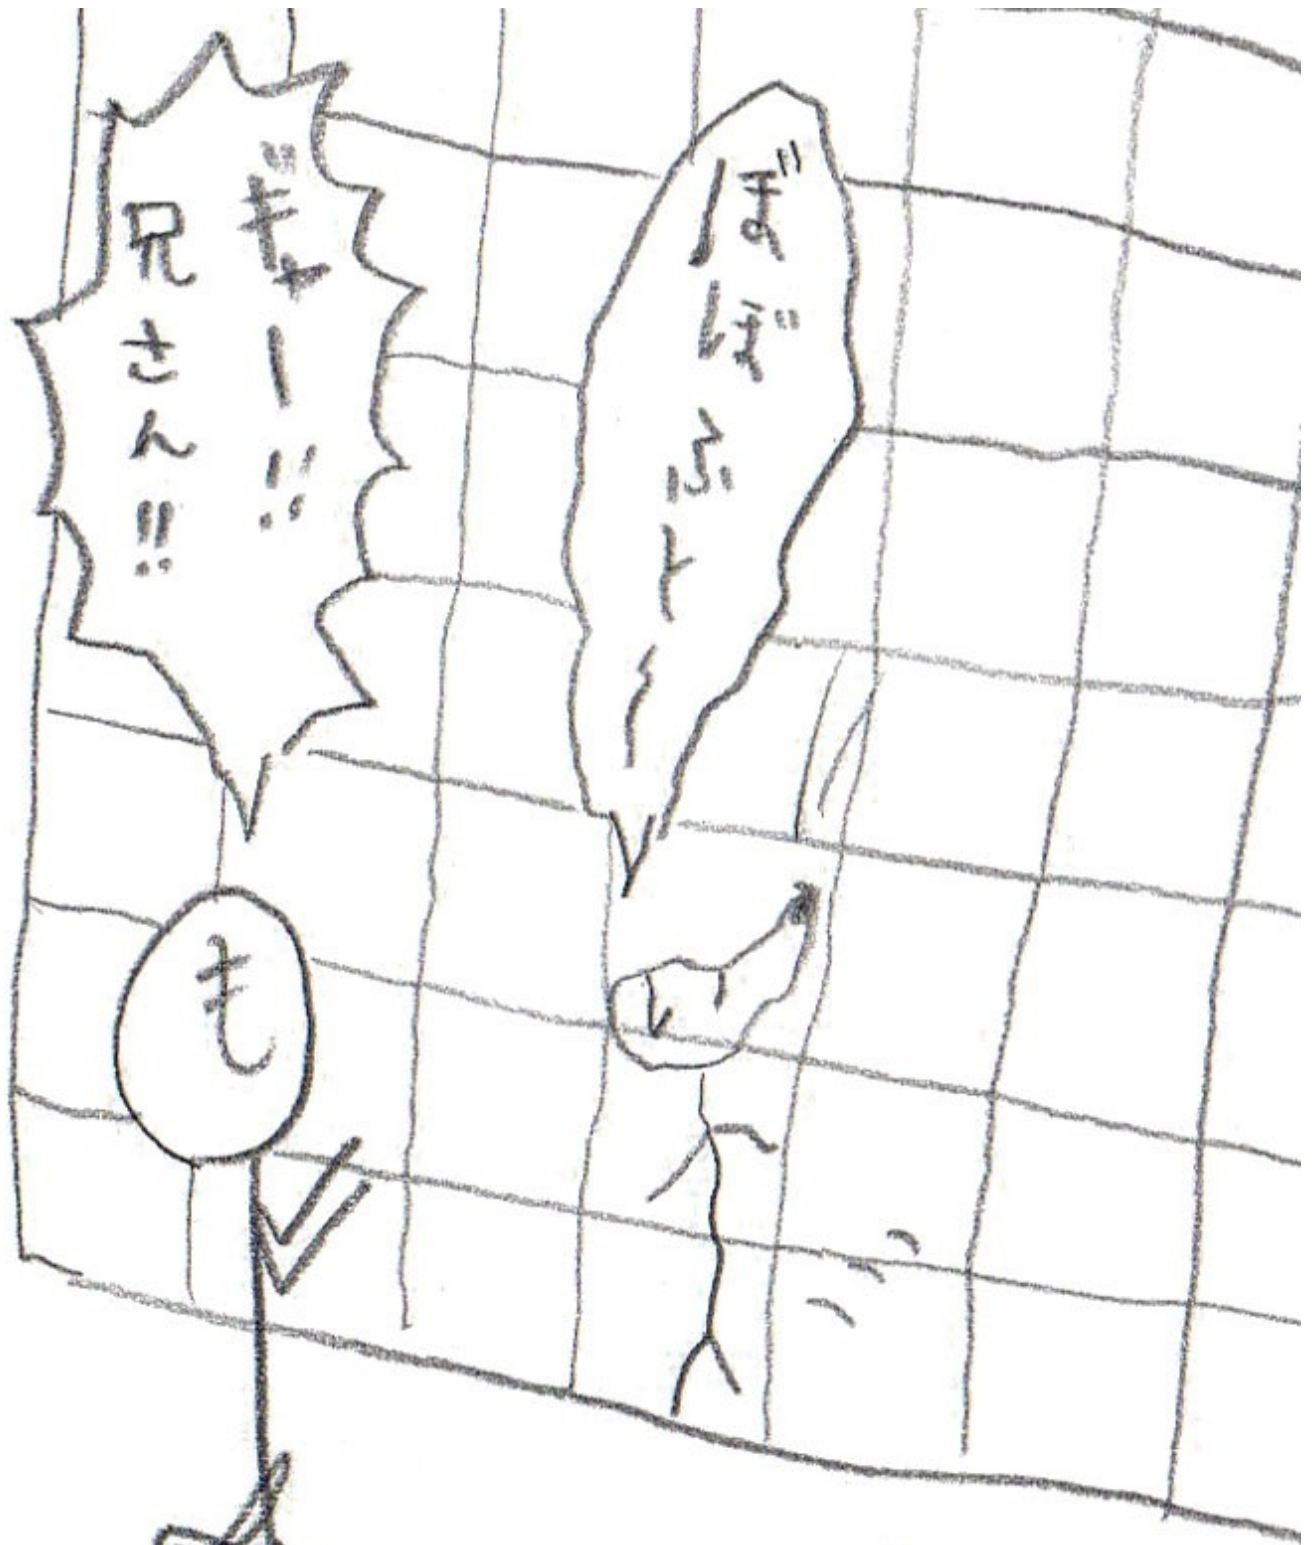 ぼぼふト〜
ギャー!!
兄さん!!
も